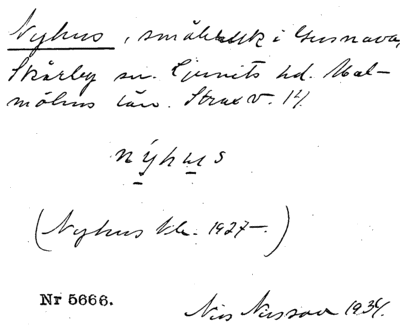 Nyhus, småbruk i Gusnava,
Skårby sn. Ljunits hd. Mal-
möhus län. Strax v. 14.
nýhus
(Nyhus bl. 1927-.)
Nr 5666.
Nils Nilsson 1934.